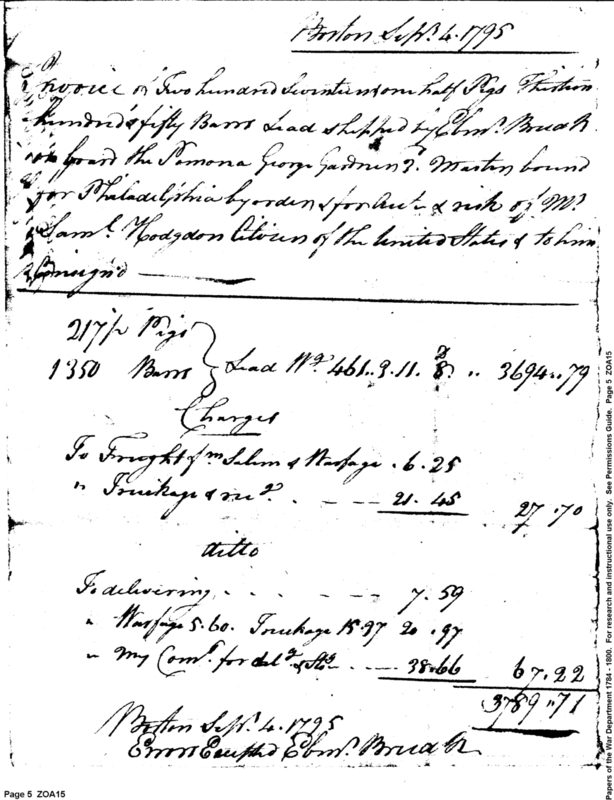 Boston Sepr. 4. 1795
Invoice of Two hundred Seventeen & one half Pigs Thirteen
hundred & fifty Barrs Lead shipped by Ebnr. Breck
on board the Pomona George Gardner Jr. Master bound
for Philadelphia by order & for Acct. & risk of Mr.
Saml. Hodgdon Citizen of the United States & to him
Consign'd
217 1/2 Pigs
1350 Barrs } Lead Wg. 461.3.11. 8 " 3694 " 79
Charges
To Freight fm Salem & Warfage . 6.25
" Truckage & 21.45 27.70
ditto
To delivering . . . 7.59
" Warfage 5.60. Truckage 15.37 20.97
" My Coms. for 38.66 67.22
3789 " 71
Boston Sepr. 4. 1795
Errors Excepted Ebnr. Breck
Page 5 ZOA15
Papers of the War Department 1784 - 1800. For research and instructional use only. See Permissions Guide. Page 5 ZOA15